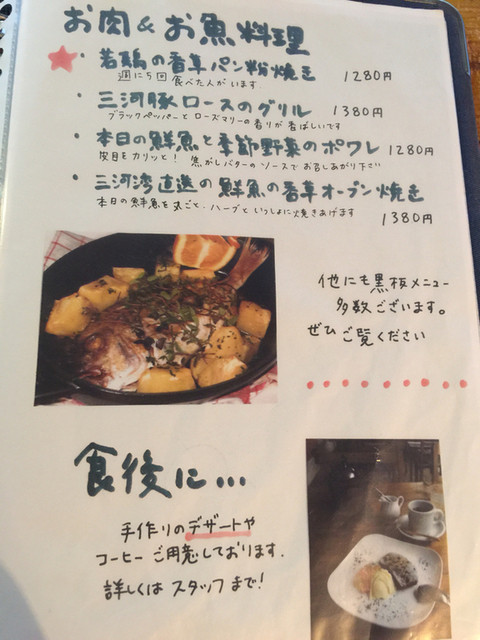 お肉&お魚料理
・若鶏の香草パン粉焼き 1280円
週に5回食べた人がいます
・三河豚ロースのグリル 1380円
ブラックペッパーとローズマリーの香りが香ばしいです
・本日の鮮魚と季節野菜のポワレ 1280円
皮目をカリッと！焦がしバターのソースでお召しあがり下さい
・三河湾直送の鮮魚の香草オーブン焼き
本日の鮮魚を丸ごと、ハーブといっしょに焼きあげます 1380円
他にも黒板メニュー
多数ございます。
ぜひご覧ください
食後に...
手作りのデザートや
コーヒーご用意しております.
詳しくはスタッフまで!